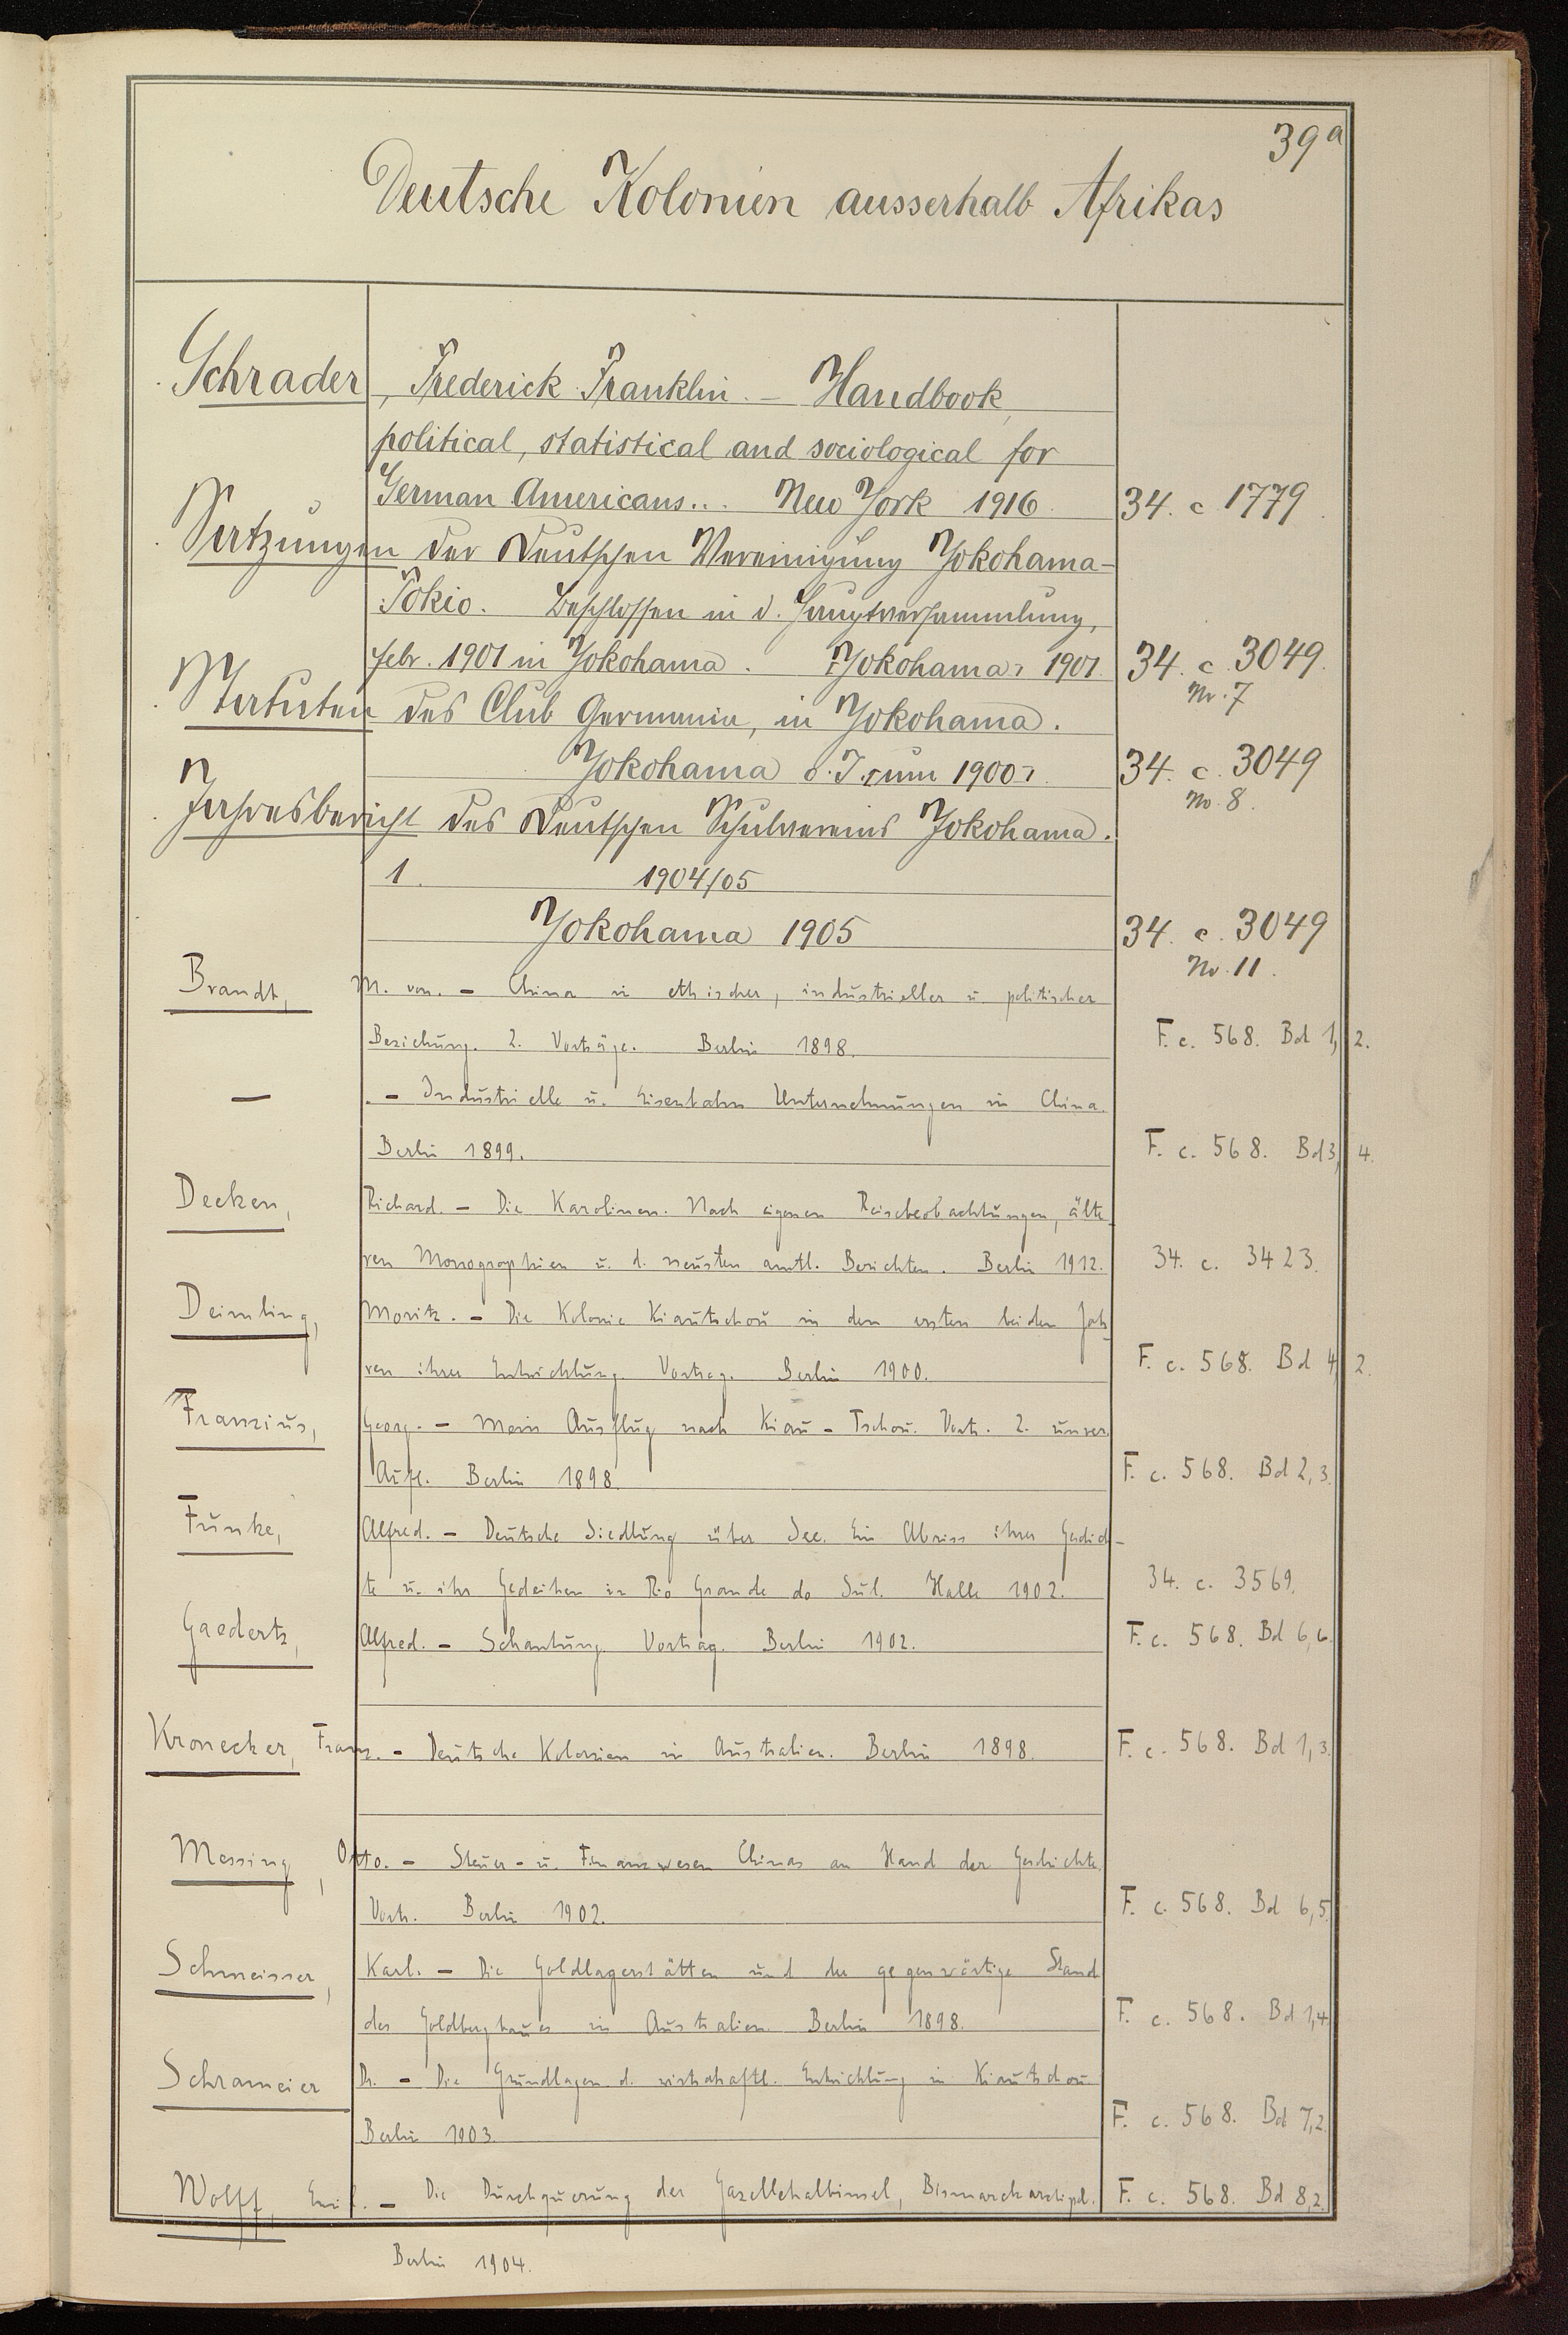 39a
Deutsche Kolonien ausserhalb Afrikas
Schrader, Frederick Franklin. – Handbook,
political, statistical and sociological for
German Americans... New York 1916. 34. c 1779.
Satzungen der Deutschen Vereinigung Yokohama-
Tokio. Beschlossen in d. Hauptversammlung,
Febr. 1901 in Yokohama. [Yokohama] 1901. 34. c. 3049.
Nr. 7
Statuten des Club Germania, in Yokohama.
Yokohama o. J. [um 1900] 34. c. 3049
No. 8.
Jahresbericht des Deutschen Schulvereins Yokohama.
1. 1904/05
Yokohama 1905 34. c. 3049
No. 11.
Brandt, M. von. – China in ethischer, industrieller u. politischer
Beziehung. 2. Vorträge. Berlin 1898. F. c. 568. Bd 1, 2.
— . – Industrielle u. Eisenbahn Unternehmungen in China.
Berlin 1899. F. c. 568. Bd 3, 4.
Decken, Richard. – Die Karolinen. Nach eigenen Reisebeobachtungen, älte-
ren Monographien u. d. neusten amtl. Berichten. Berlin 1912. 34. c. 3423.
Deimling, Moritz. – Die Kolonie Kiautschou in den ersten beiden Jah
ren ihrer Entwicklung. Vortrag. Berlin 1900. F. c. 568. Bd 4, 2.
Franzius, Georg. – Mein Ausflug nach Kiau-Tschou. Vortr. 2. unver.
Aufl. Berlin 1898. F. c. 568. Bd 2, 3.
Funke, Alfred. – Deutsche Siedlung über See. Ein Abriss ihrer Geschich-
te u. ihr Gedeihen in Rio Grande do Sul. Halle 1902. 34. c. 3569.
Gaedertz, Alfred. – Schantung. Vortrag. Berlin 1902. F. c. 568. Bd 6, 6.
Kronecker, Franz. – Deutsche Kolonien in Australien. Berlin 1898. F. c. 568. Bd 1, 3.
Messing, Otto. – Steuer- u. Finanzwesen Chinas an Hand der Geschichte.
Vortr. Berlin 1902. F. c. 568. Bd 6, 5.
Schmeisser, Karl. – Die Goldlagerstätten und der gegenwärtige Stand
des Goldbergbaues in Australien. Berlin 1898. F. c. 568. Bd 1, 4.
Schrameier Dr. – Die Grundlagen d. wirtschaftl. Entwicklung in Kiautschou.
Berlin 1903. F. c. 568. Bd 7, 2.
Wolff, Emil. – Die Durchquerung der Gazellehalbinsel, Bismarckarchipel. F. c. 568. Bd 8, 2.
Berlin 1904.